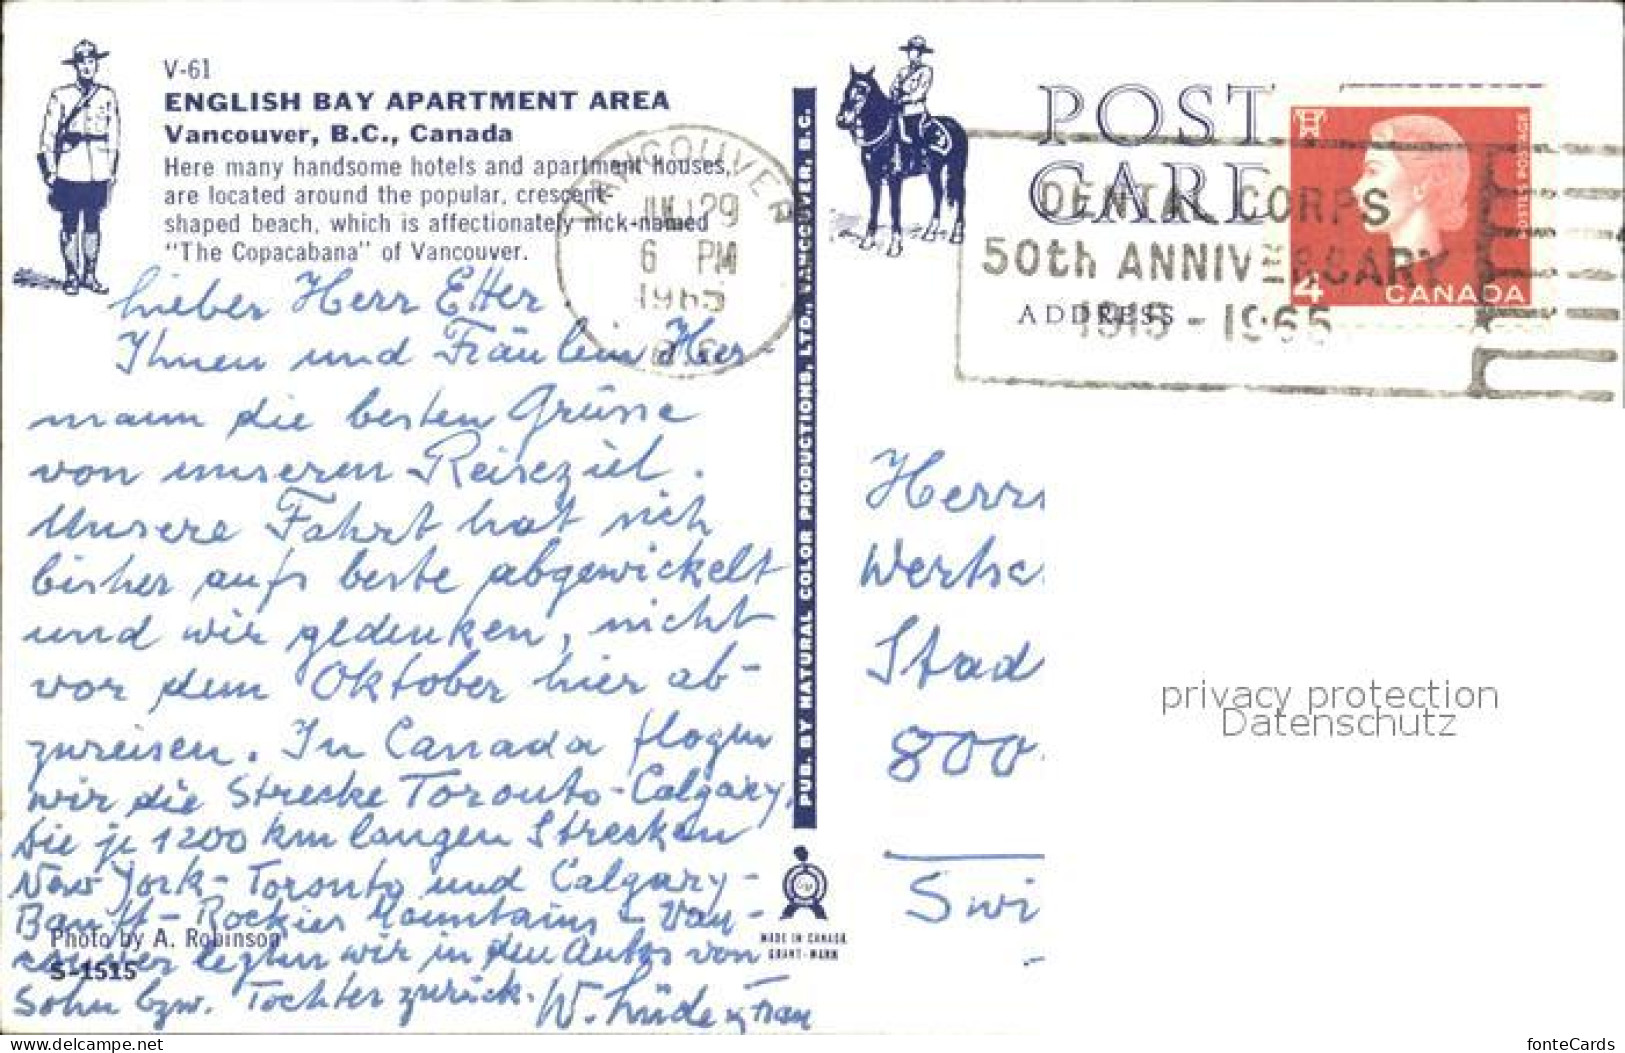 V-61
ENGLISH BAY APARTMENT AREA
Vancouver, B.C., Canada
Here many handsome hotels and apartment houses,
are located around the popular, crescent-
shaped beach, which is affectionately nick-named
"The Copacabana" of Vancouver.
Lieber Herr Etter
Ihnen und Fräulein Her-
mann die besten Grüsse
von unserem Reiseziel.
Unsere Fahrt hat sich
bisher aufs beste abgewickelt
und wir gedenken, nicht
vor dem Oktober hier ab-
zureisen. In Canada flogen
wir die Strecke Toronto-Calgary,
die je 1200 km langen Strecken
New York-Toronto und Calgary-
Banff-Rockies Mountains-Van-
couver legten wir in den Autos von
Sohn bzw. Tochter zurück. W. Lüde u Frau
Photo by A. Robinson
S-1515
PUB. BY NATURAL COLOR PRODUCTIONS, LTD., VANCOUVER, B.C.
MADE IN CANADA
GRANT-MANN
VANCOUVER
29
6 PM
1965
POST
CARD
ADDRESS
DENTAL CORPS
50th ANNIVERSARY
1915-1965
POSTES POSTAGE
4 CANADA
Herrn
Wertsc
Stad
800
Swi
privacy protection
Datenschutz
fonteCards